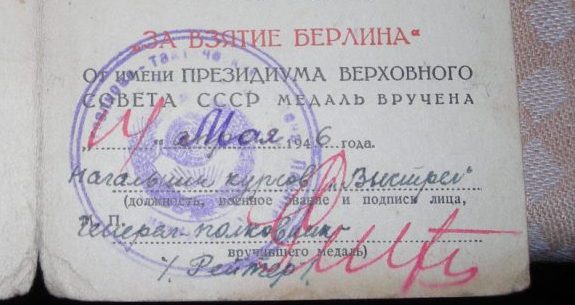 „ЗА ВЗЯТИЕ БЕРЛИНА“
От имени ПРЕЗИДИУМА ВЕРХОВНОГО
СОВЕТА СССР МЕДАЛЬ ВРУЧЕНА
„14“ Мая 1946 года.
Начальник курсов „Выстрел“
(должность, воинское звание и подпись лица,
М. П.
Генерал-полковник
вручившего медаль)
/ Рейтер /